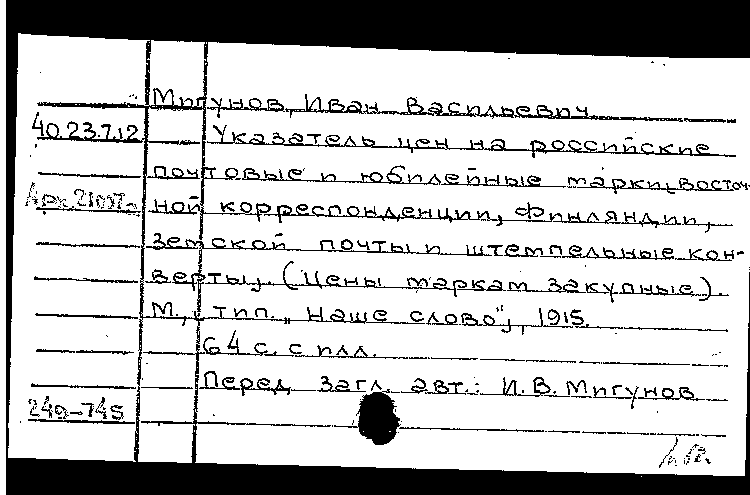 Мигунов, Иван Васильевич
40.23.7.12 Указатель цен на российские
почтовые и юбилейные марки, восточ-
ной корреспонденции, Финляндии,
земской почты и штемпельные кон-
верты, (Цены маркам закупные).
М., тип. "Наше слово", 1915.
64 с. с илл.
Перед загл. авт.: И.В. Мигунов
240-745